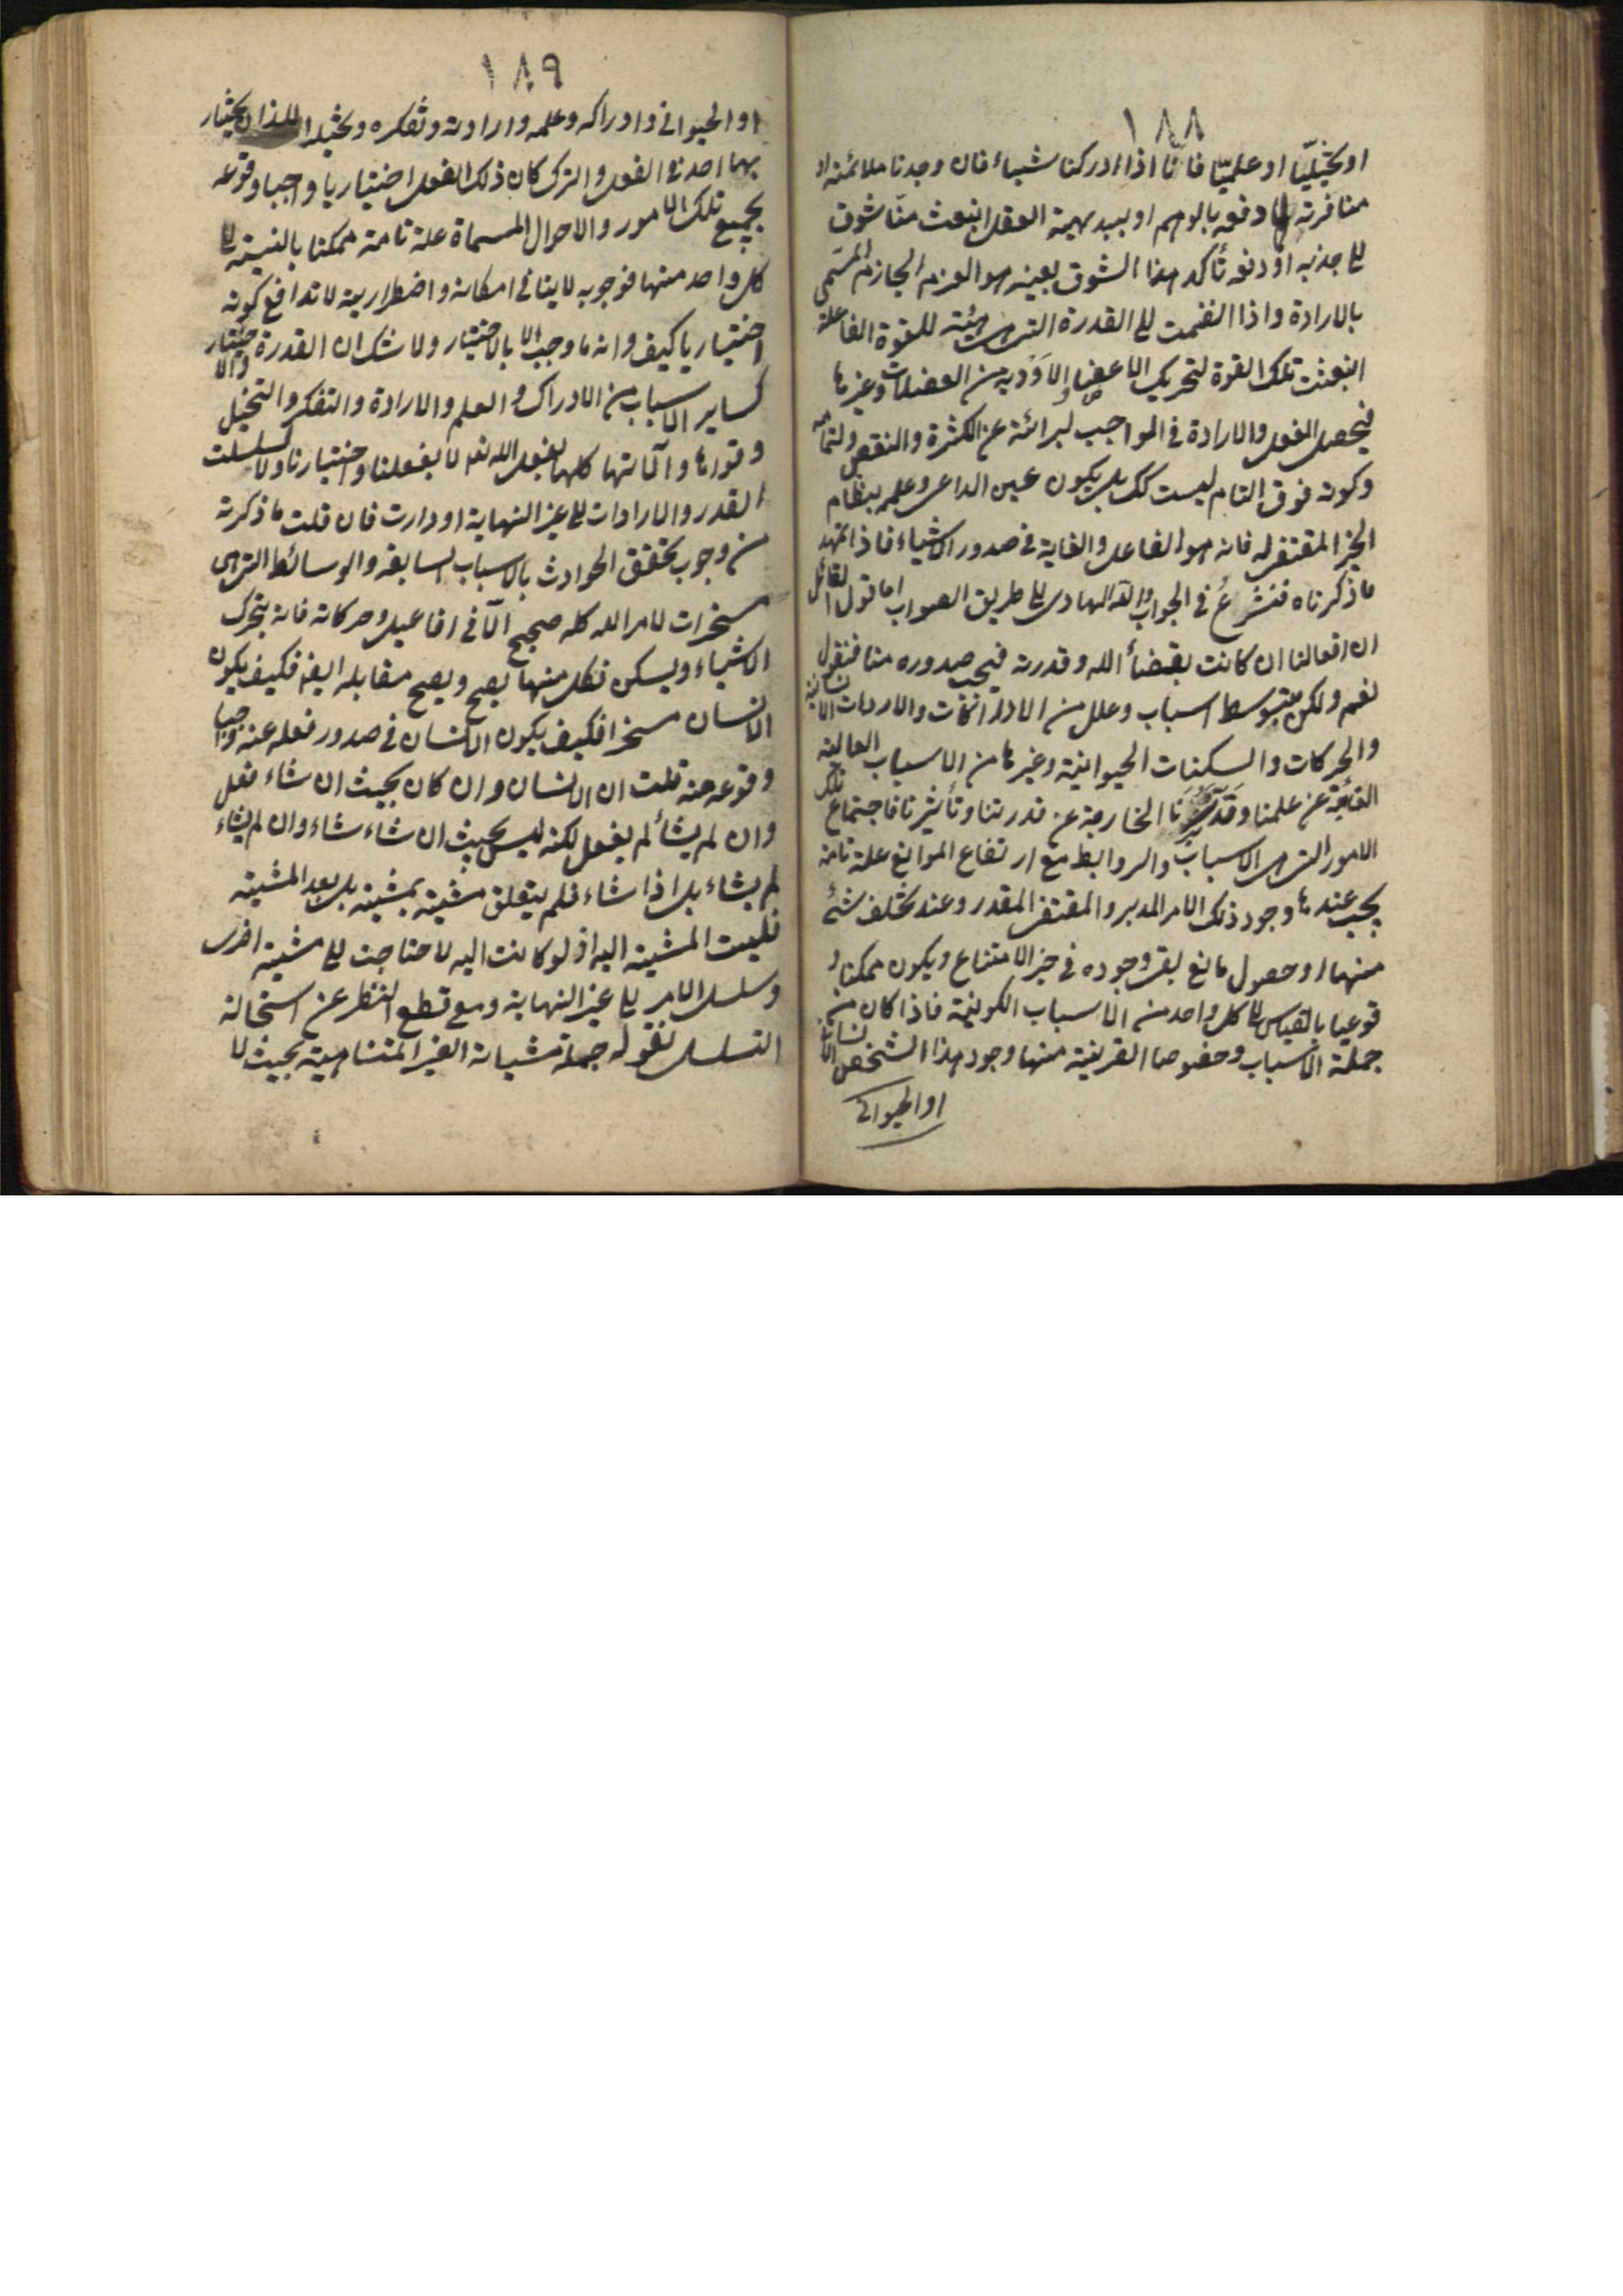 ١٨٨
او تخيليّا او علميّا فانا اذا ادركنا شيئا فان وجدنا ملائمته او
منافرته دفعه بالوهم او ببديهية العقل انبعث منّا شوق
الى جذبه او دفعه تأكد هذا الشوق بعينه هو العزم الجازم المسمى
بالارادة واذا انضمت الى القدرة التي هي هيئة للقوة الفاعلة
انبعثت تلك القوة لتحريك الاعضاء الادوية من العضلات وغيرها
فيحصل الفعل والارادة في الواجب لبرائته عن الكثرة والنقص ولتمامه
وكونه فوق التام ليست كك بل يكون عين الداعي وعلمه بنظام
الخير المقتضي له فانه هو الفاعل والغاية في صدور الاشياء فاذا تمهد
ما ذكرناه فنشرع في الجواب والله الهادي الى طريق الصواب اما قول القائل
ان افعالنا ان كانت بقضأ الله وقدرته فيجب صدوره منا فنقول
نعم ولكن بتوسط اسباب وعلل من الادراكات والارادات الانسانية
والحركات والسكنات الحيوانية وغيرها من الاسباب العالية
الغائبة عن علمنا وتدبيرنا الخارجة عن قدرتنا وتأثيرنا فاجتماع تلك
الامور التي هي الاسباب والروابط مع ارتفاع الموانع علة تامة
يجب عندها وجود ذلك الامر المدبر والمقتضى المقدر وعند تخلف شئ
منها او حصول مانع بقي وجوده في حيز الامتناع ويكون ممكنا و
قوعيا بالقياس الى كل واحد من الاسباب الكونية فاذا كان من
جملة الاسباب وخصوصا القريبة منها وجود هذا الشخص الانساني
او الحيواني
١٨٩
او الحيواني وادراكه وعلمه وارادته وتفكره وتخيله اللذان يختار
بهما احد في الفعل والترك كان ذلك الفعل اختياريا واجبا وقوعه
بجميع تلك الامور والاحوال المسماة علة تامة ممكنا بالنسبة الى
كل واحد منها فوجوبه لا ينافي امكانه واضطراريته لا تدافع كونه
اختياريا كيف وانه ما وجب الا بالاختيار ولا شك ان القدرة والاختيار
كساير الاسباب من الادراك والعلم والارادة والتفكر والتخيل
وقواها وآلاتها كلها بفعل الله تعم لا بفعلنا واختيارنا والا لتسلسلت
القدر والارادات الى غير النهاية او دارت فان قلت ما ذكرته
من وجوب تحقق الحوادث بالاسباب السابقة والوسائط التي هي
مسخرات لامر الله كله صحيح الّا في افاعيل وحركاته فانه يتحرك
الاشياء ويسكن فكل منها يصح ويصح مقابله ايضا فكيف يكون
الانسان مسخرا فكيف يكون الانسان في صدور فعله عنه واجبا
وقوعه منه قلت ان الانسان وان كان بحيث ان شاء فعل
وان لم يشأ لم يفعل لكنه ليس بحيث ان شاء شاء وان لم يشاء
لم يشاء بل اذا شاء فلم يتعلق مشيته بمشيته بل بعد المشية
فليست المشية اليه اذ لو كانت اليه لاحتاجت الى مشية اخرى
وسلسل الامر الى غير النهاية ومع قطع النظر عن استحالة
التسلسل نقول جملة مشياته الغير المتناهية بحيث لا